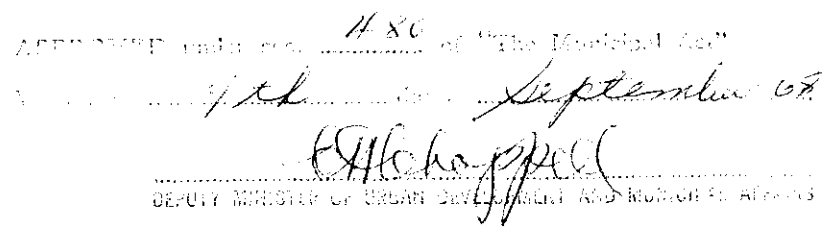 APPROVED under sec. 480 of "The Municipal Act"
4th day September 68
DEPUTY MINISTER OF URBAN DEVELOPMENT AND MUNICIPAL AFFAIRS